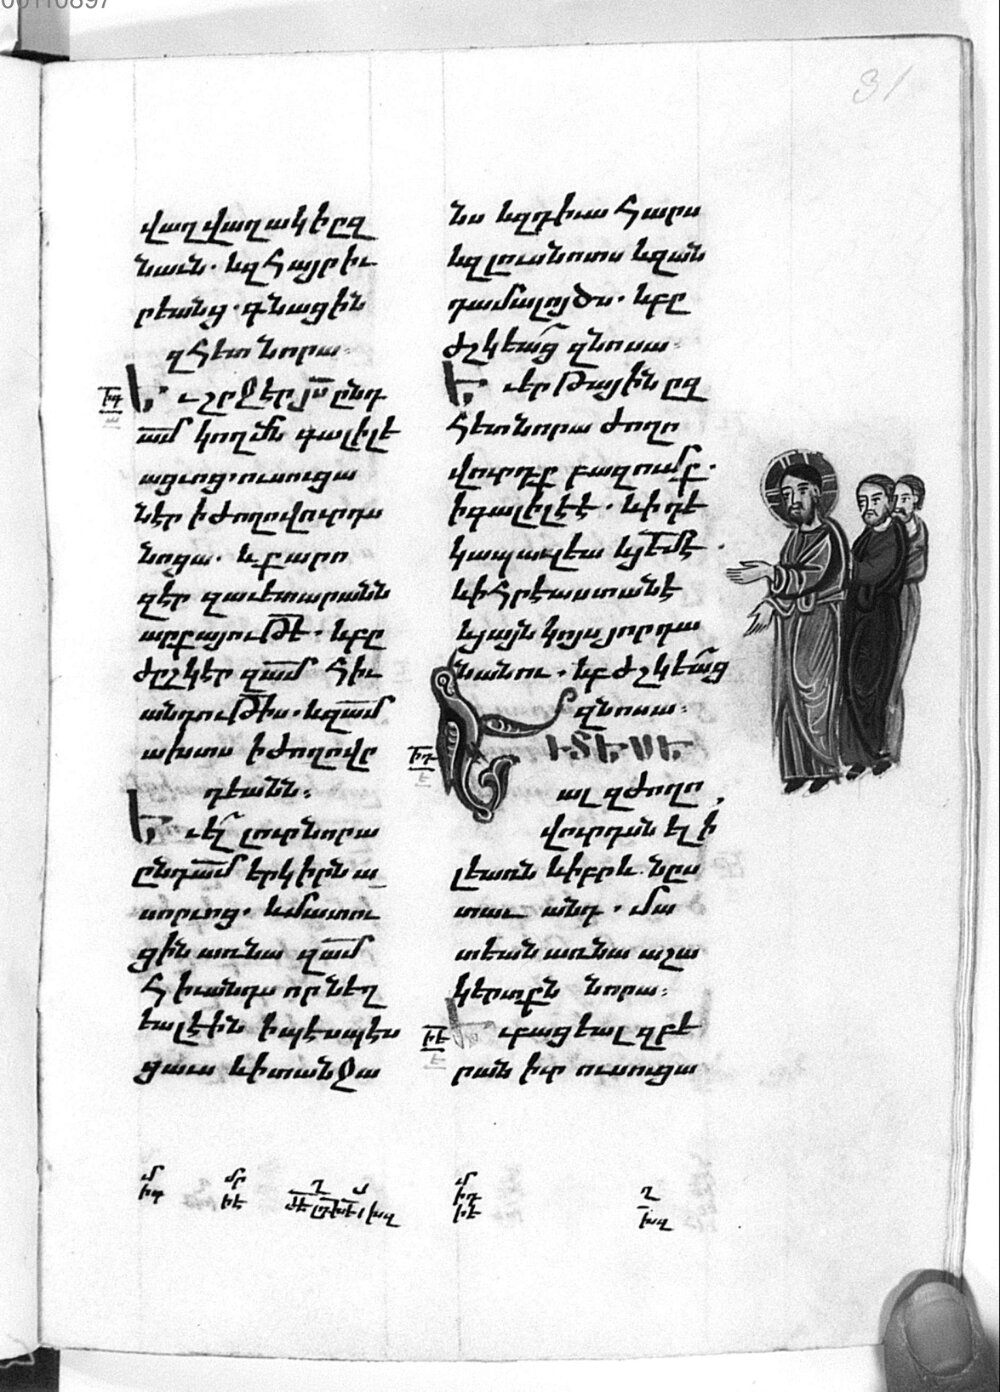 00110897
31
վաղվաղակի ըզ
նաւն. եզհայր իւ
րեանց. գնացին
զհետ նորա։
իգ
Եւ շրջէր յս ընդ
ամ կողմն գալիլե
ացւոց. ուսուցա
նէր ի ժողովուրդս
նոցա. և քարո
զէր զաւետարանն
արքայութե. և բը
ժըշկէր զամ հիւ
անդութիս. և զամ
ախտս ի ժողովը
դեանն։
Եւ ել լուր նորա
ընդ ամ երկիրն ա
սորւոց. և մատու
ցին առ նա զամ
հիւանդս որ նեղ
եալ էին ի պէսպէս
ցաւս և ի տանջա
նս և զդիւահարս
և զլուսնոտս և զան
դամալոյծս. և բը
ժշկեաց զնոսա։
Եւ երթային ըզ
հետ նորա ժողո
վուրդք բազումք.
ի գալիլեէ. և ի դե
կապաւլեա և յեմէ.
և ի հրէաստանէ
և յայն կոյս յորդա
նանու. և բժշկեաց
զնոսա։
իդ
ԻՏԵՍԵ
ալ զժողո
վուրդսն ել ի
լեառն և իբրև նըս
տաւ անդ. մա
տեան առ նա աշա
կերտքն նորա։
իե
Եւ բացեալ զբե
րան իւր ուսուցա
մ
իգ
մր
իէ
ղ
մ
իդ
իե
ղ